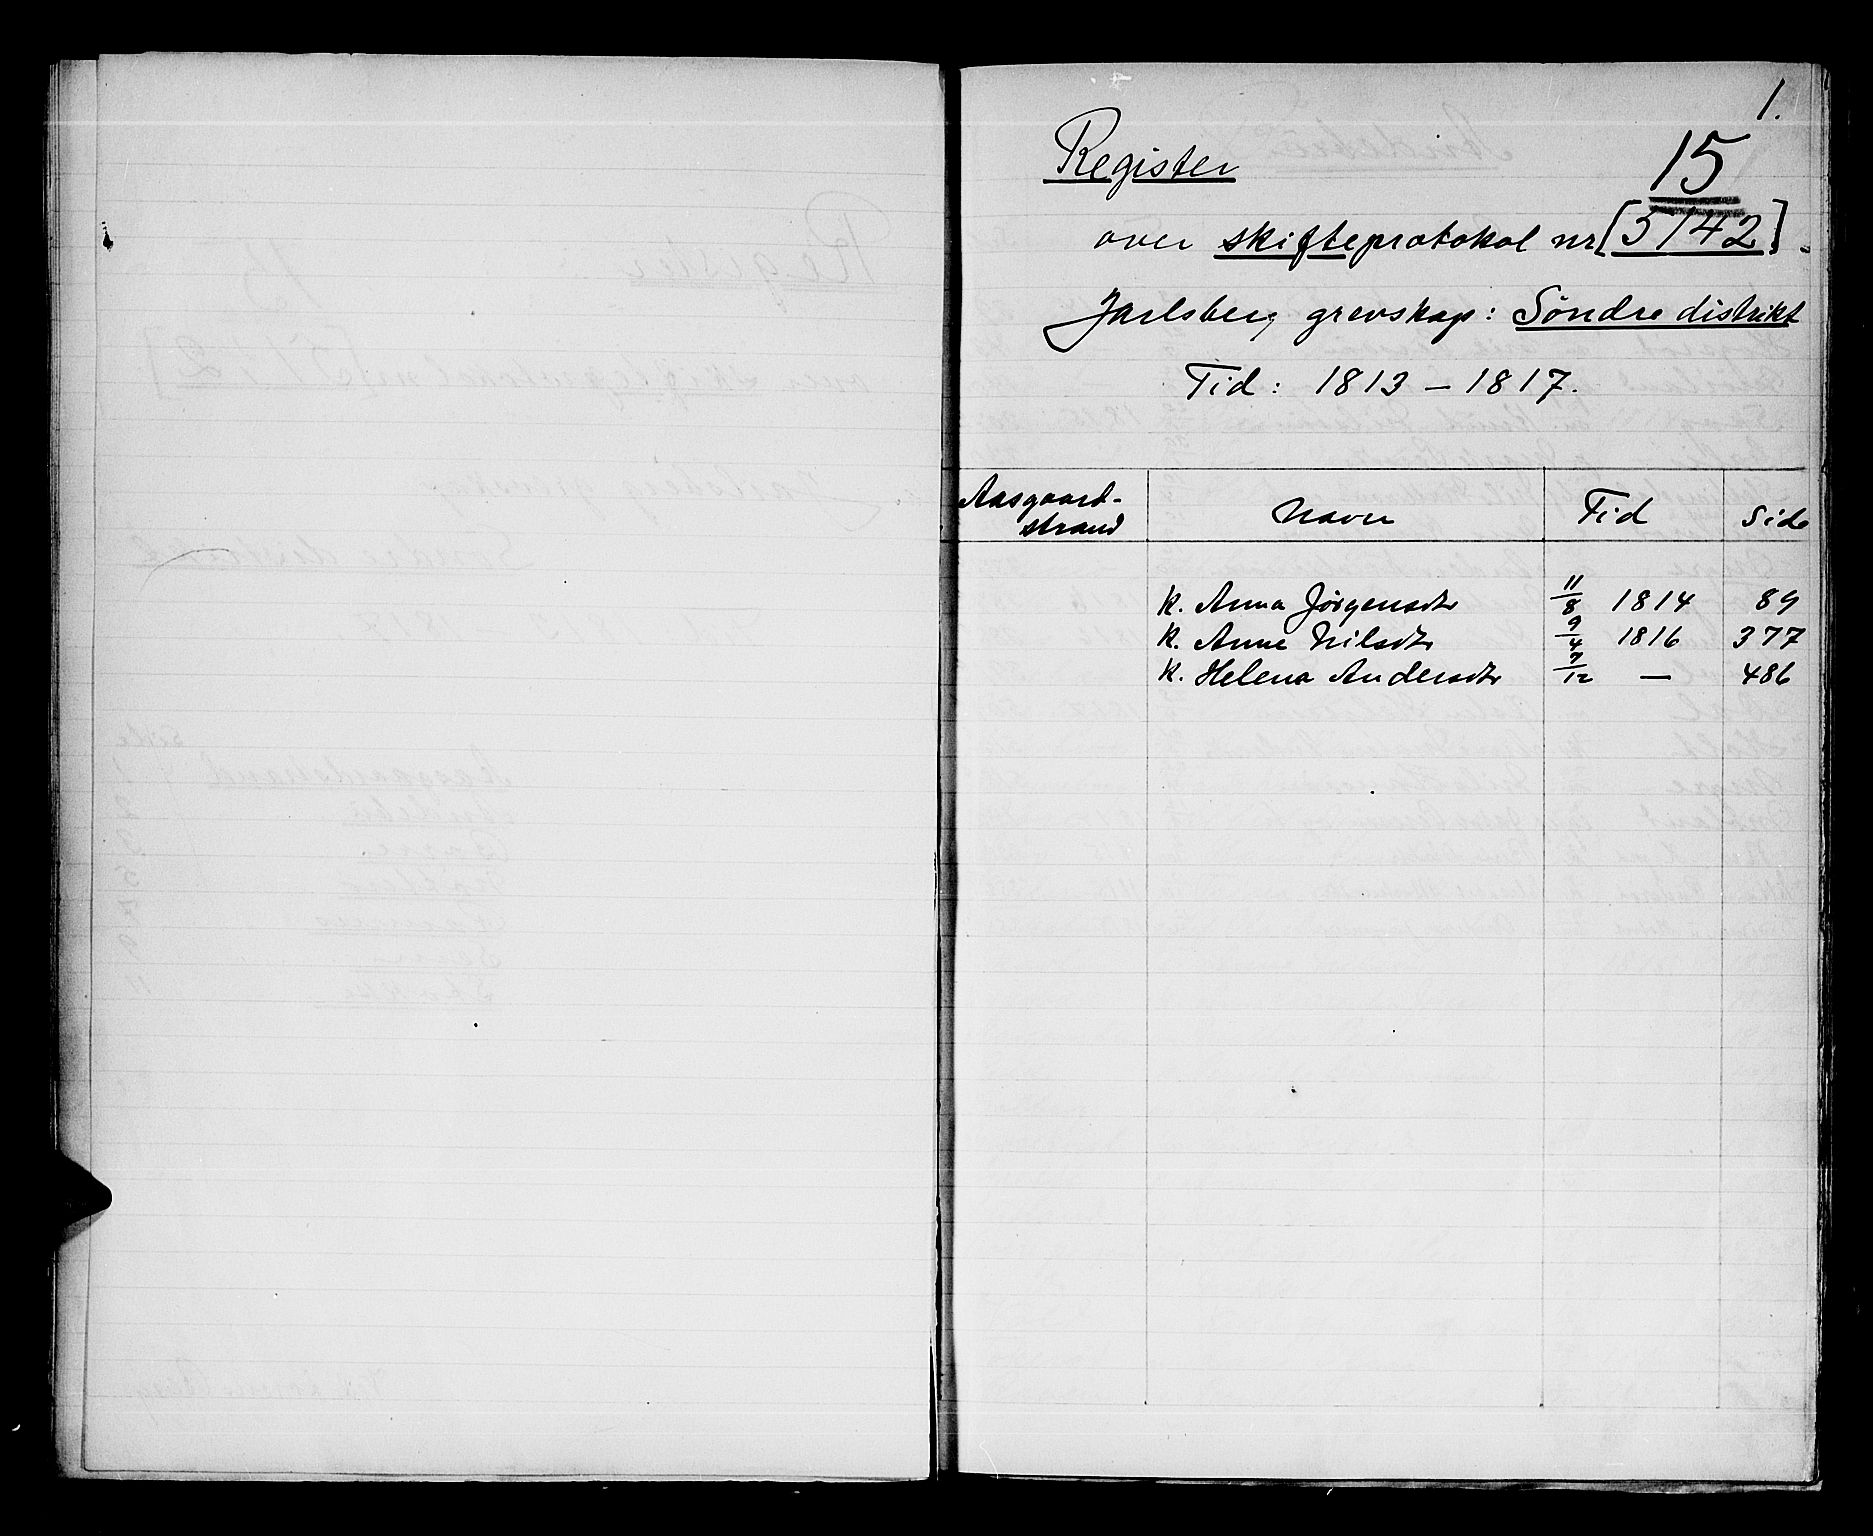 1.
Register
15
over skifteprotokol nr [5142].
Jarlsberg grevskap: Søndre distrikt
Tid: 1813 – 1817.
Aasgaard-
strand
Navn
Tid
Side
K. Anna Jørgensdtr 11/8 1814 89
K. Anne Nilsdtr 9/4 1816 377
K. Helena Andersdtr 7/12 — 486